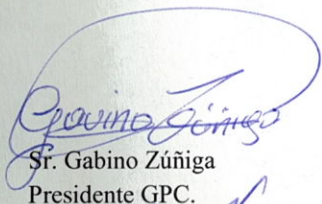 Gavino Zúñiga
Sr. Gabino Zúñiga
Presidente GPC.